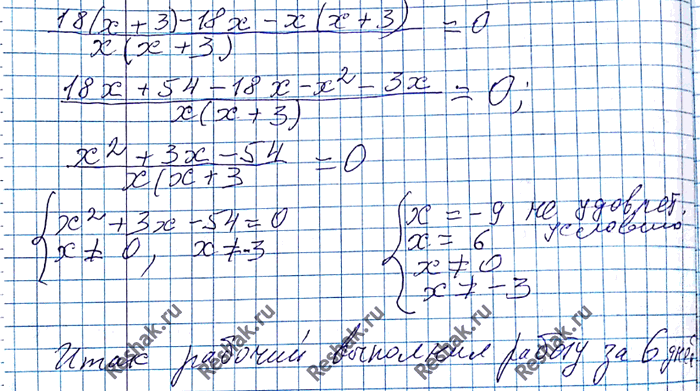 18(x+3)-18x-x(x+3) / x(x+3) = 0
18x+54-18x-x²-3x / x(x+3) = 0;
x²+3x-54 / x(x+3 = 0
{ x²+3x-54=0
x≠0, x≠-3
{ x=-9 не удовлет. условию
x=6
x≠0
x≠-3
Итак рабочий выполнил работу за 6 дней
Reshak.ru Reshak.ru Reshak.ru Reshak.ru